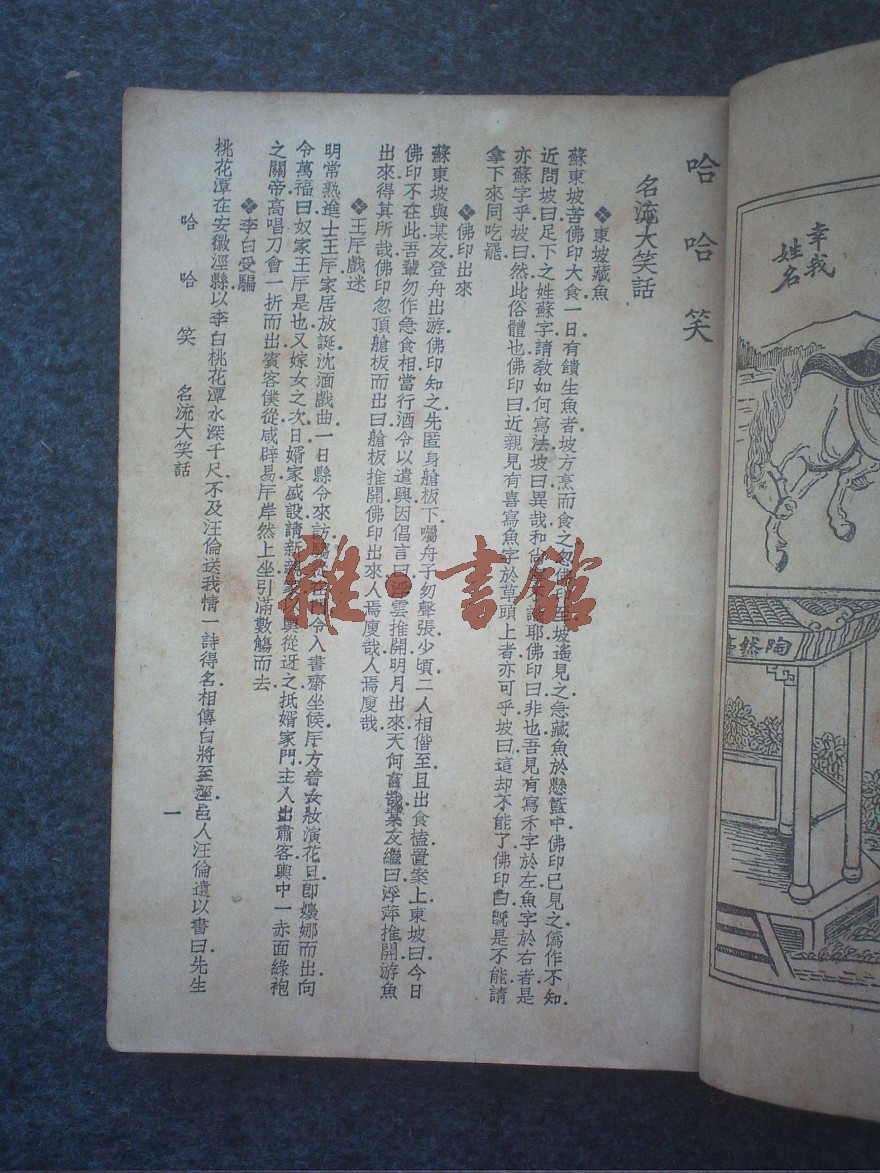 幸哉
姓名
陶然亭
哈哈笑
名流大笑話
❖東坡藏魚
蘇東坡苦佛印大食一日有饋生魚者坡方烹而食之忽佛印至坡遙見之急藏魚於懸籃中佛印已見之僞作不知
近問坡曰足下之姓蘇字請教如何寫法坡曰異哉和尚 耶佛印曰非也吾見有寫禾字於左魚字於右者是
亦蘇字乎坡曰然此俗體也佛印曰近親見有喜寫魚字於草頭上者亦可乎坡曰這却不能了佛印曰旣是不能請
拿下來同吃罷
❖佛印出來
蘇東坡與某友登舟出游佛印知之先匿身艙板下囑舟子勿聲張少頃二人相偕至且出食榼置案上東坡曰今日
佛印不在此吾輩勿作急食相當行酒令以遣興因倡言曰浮雲推開明月出來天何言哉某友繼曰浮萍推開游魚
出來得其所哉佛印忽頂艙板而出曰艙板推開佛印出來人焉廋哉人焉廋哉
❖王厈戲迷
明常熟進士王厈家居放誕沈湎戲曲一日縣令來訪 令入書齋坐候厈方着女妝演花旦卽孃娜而出向
令萬福曰奴家王厈是也又嫁女之次日婿家盛設請新親 輿從迓之抵婿家門主人出肅客輿中一赤面綠袍
之關帝高唱刀會一折而出賓客僕從咸辟易厈岸然上坐引滿數觴而去
❖李白受騙
桃花潭在安徽涇縣以李白桃花潭水深千尺不及汪倫送我情一詩得名相傳白將至涇邑人汪倫遺以書曰先生
哈哈笑 名流大笑話
一
雜·書館